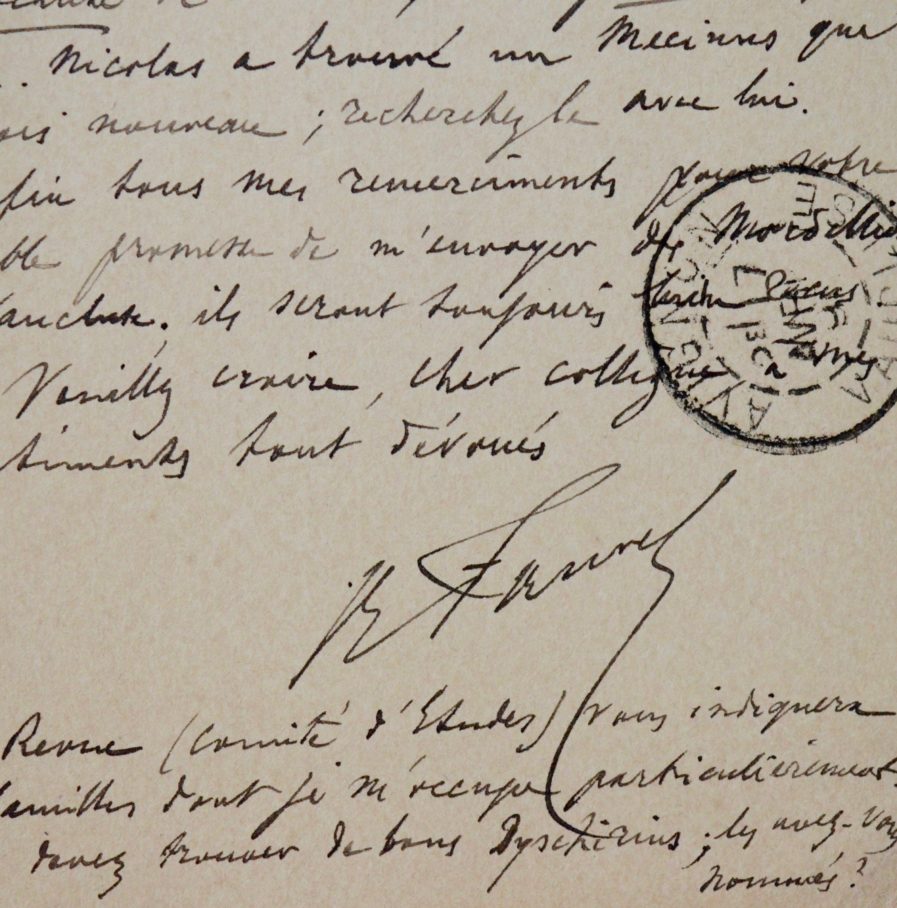 . Nicolas a trouvé un Mecinus que
ois nouveau ; recherchez le avec lui.
fin tous mes remerciments pour votre
ble promesse de m'envoyer des Mordellid
aucluse. ils seront toujours bien
Veuillez croire, cher collègue
timents tout dévoués
A Fauvel
Revue (Comité d'Etudes) vous indiquera
familles dont je m'occupe particulièrement.
devez trouver de bons Dyschirius ; les avez-vous
nommés ?
AVIGNON
VAUCLUSE